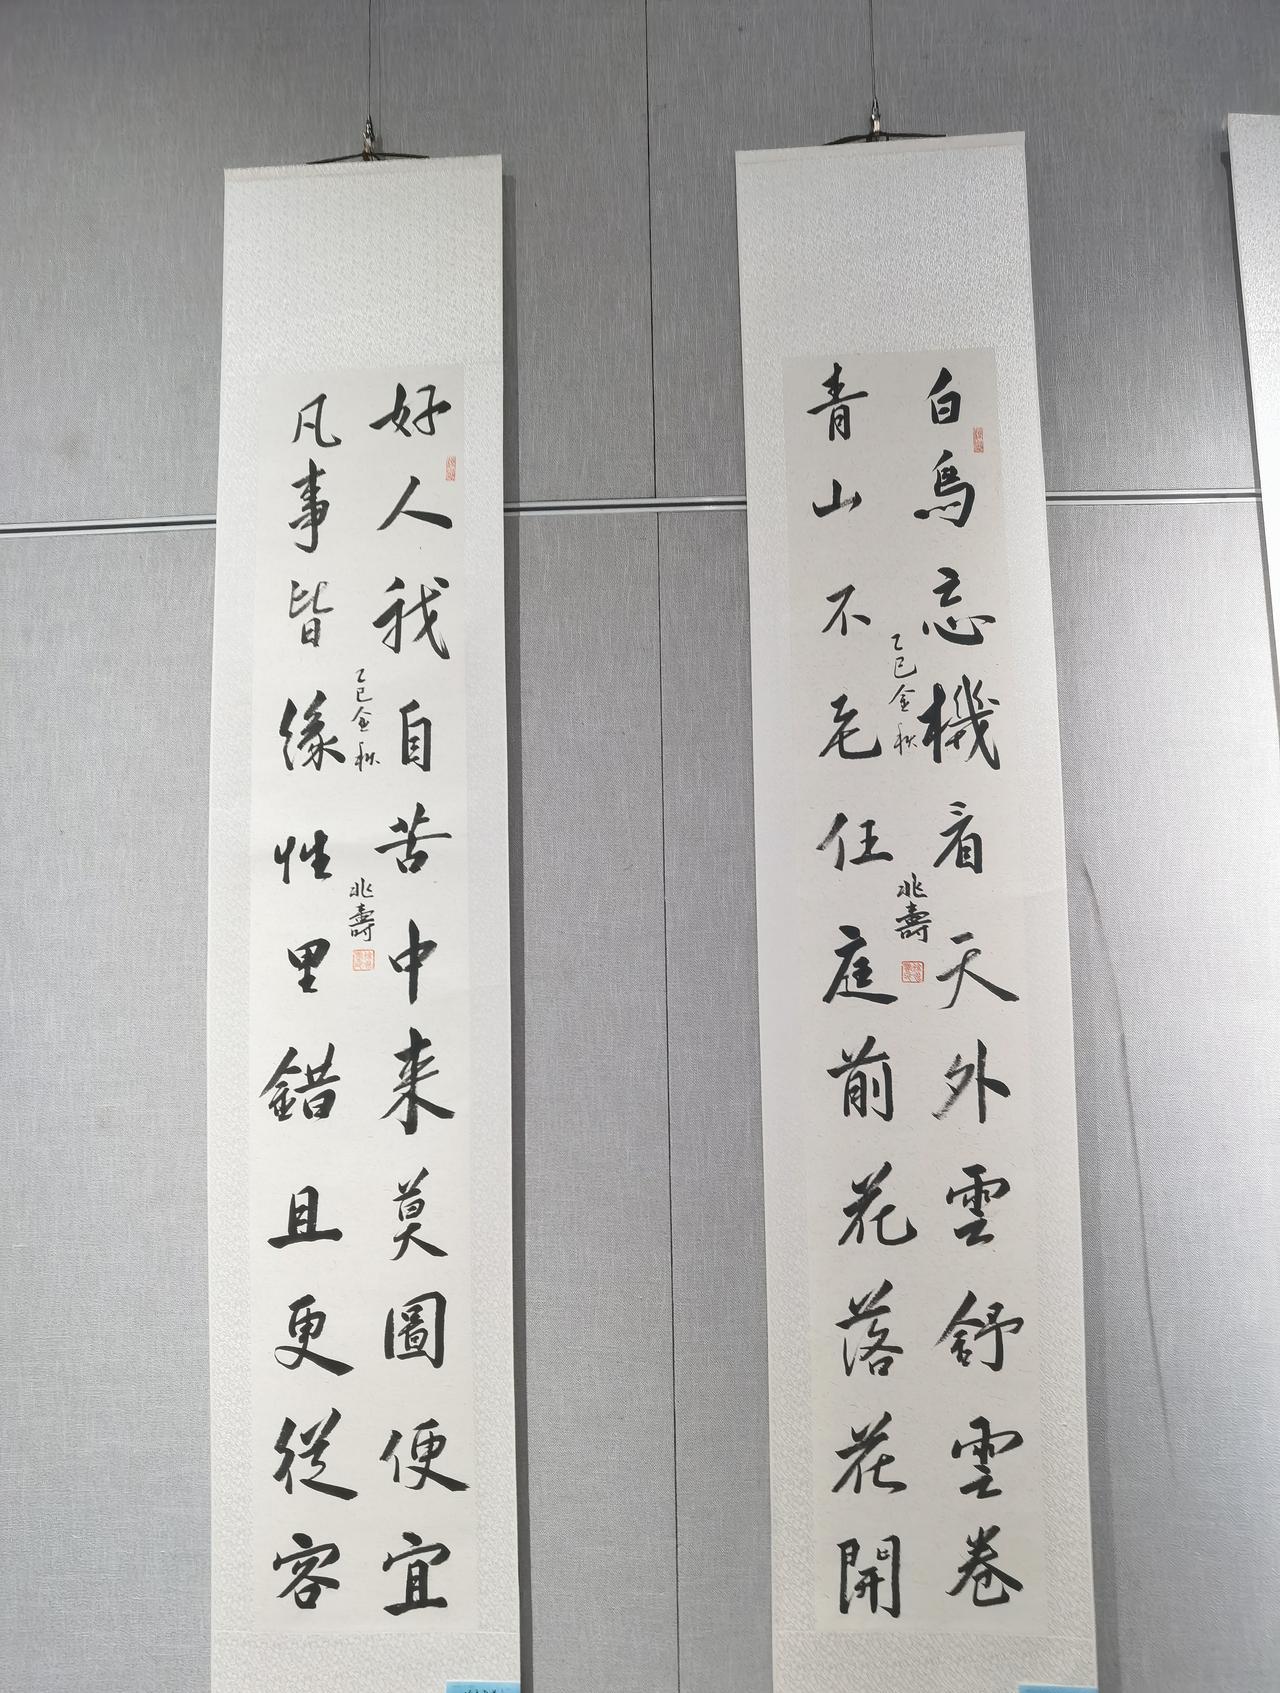 白鳥忘機看天外雲舒雲卷
青山不老任庭前花落花開
乙巳金秋
兆壽
好人我自苦中来莫圖便宜
凡事皆緣性里錯且更從容
乙巳金秋
兆壽